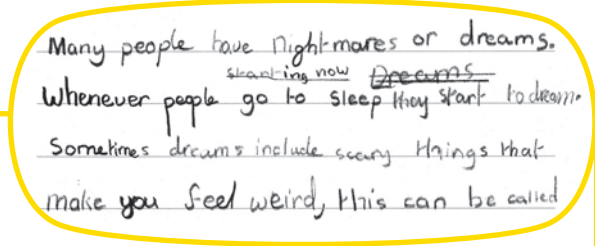 Many people have nightmares or dreams.
starting now Dreams
Whenever people go to sleep they start to dream.
Sometimes dreams include scary things that
make you feel weird, this can be called